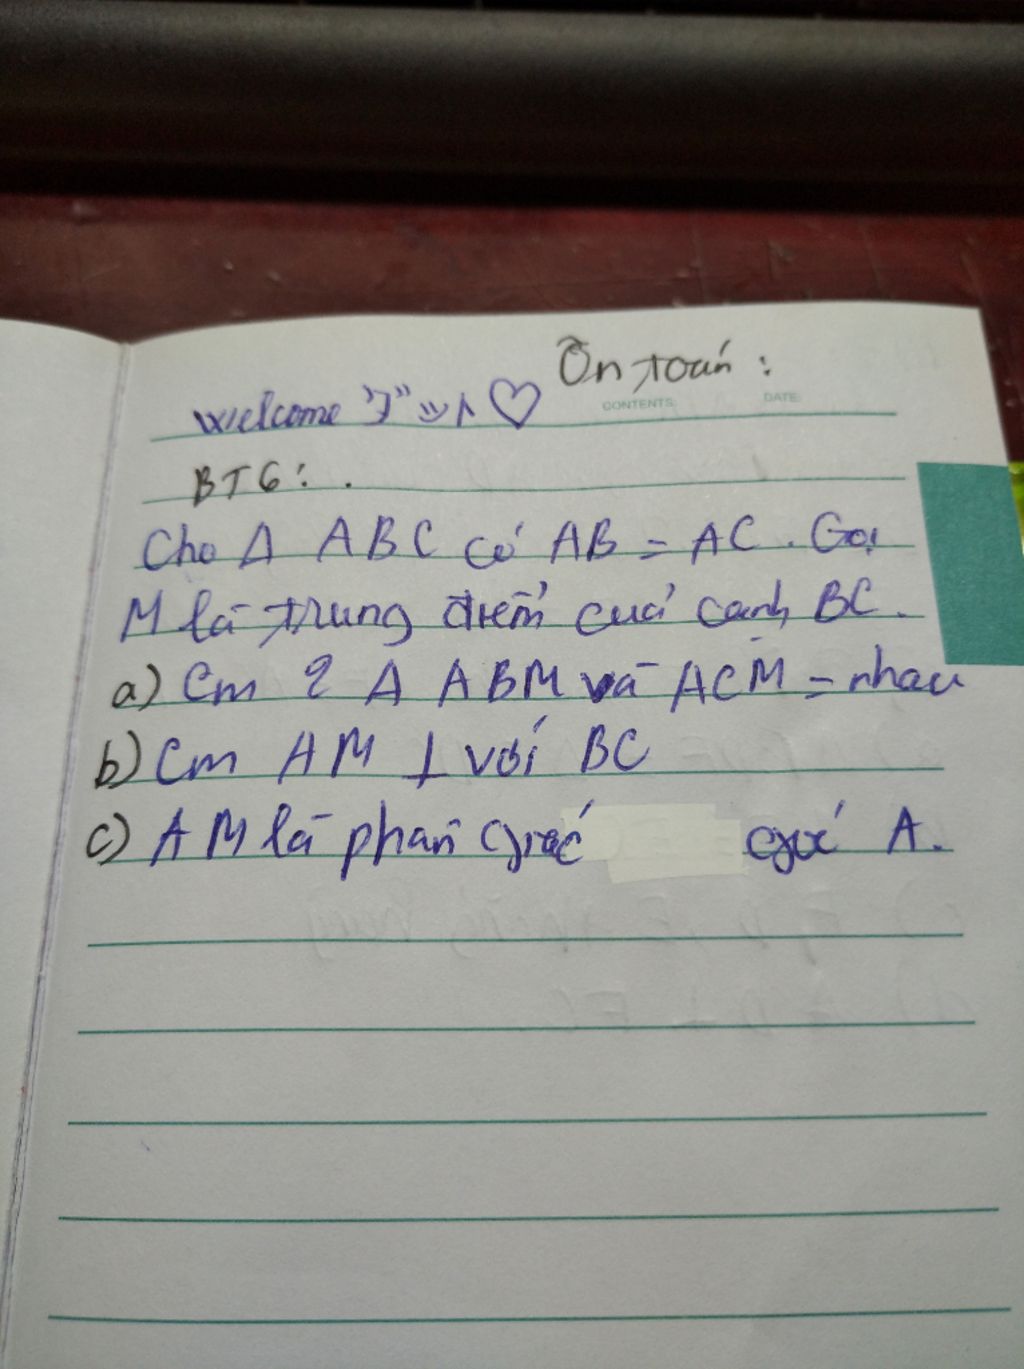 Ôn toán :
CONTENTS: DATE:
Welcome
BT6 : .
Cho Δ ABC có AB = AC . Gọi
M là trung điểm của cạnh BC .
a) Cm 2 Δ ABM và ACM = nhau
b) Cm AM ⊥ với BC
c) AM là phân giác góc A .